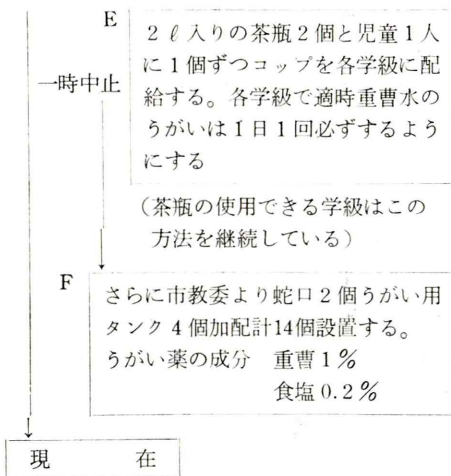 E
2ℓ入りの茶瓶2個と児童1人
に1個ずつコップを各学級に配
給する。各学級で適時重曹水の
うがいは1日1回必ずするよう
にする
一時中止
(茶瓶の使用できる学級はこの
方法を継続している)
F
さらに市教委より蛇口2個うがい用
タンク4個加配計14個設置する。
うがい薬の成分 重曹1%
食塩0.2%
現 在